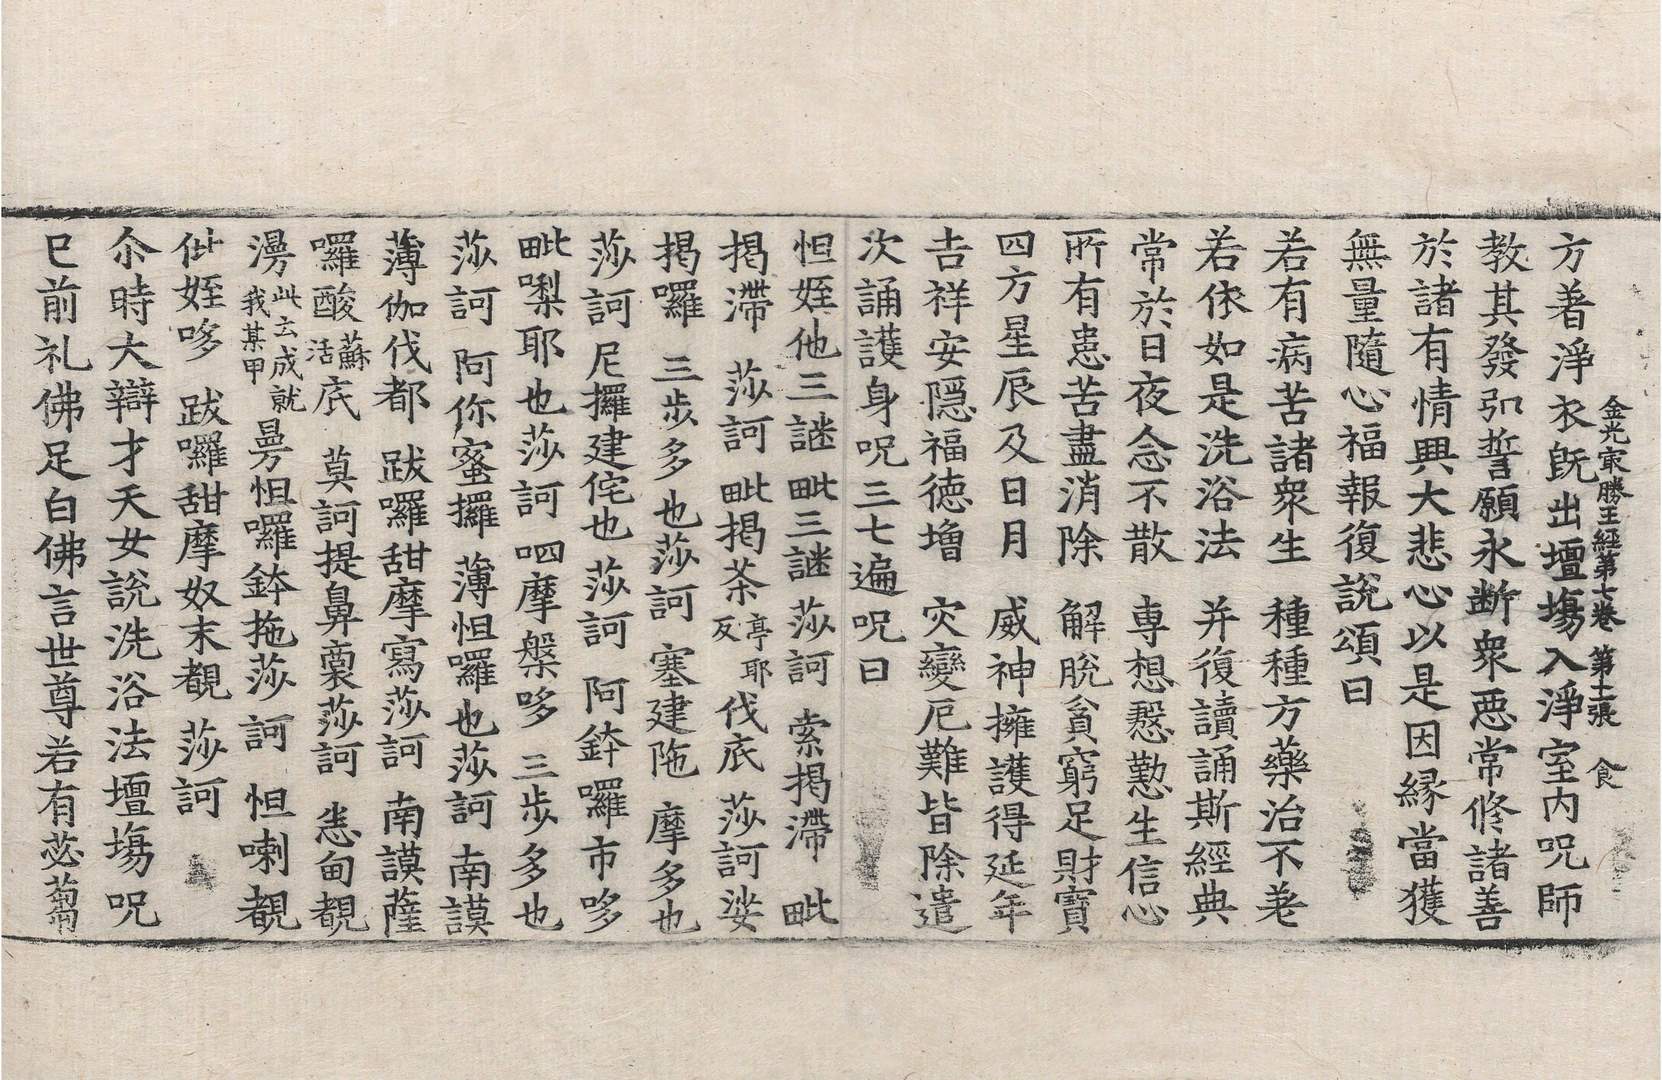 金光㝡勝王經第七卷 第十一張 食
方著淨衣旣出壇場入淨室內呪師
教其發弘誓願永斷衆惡常修諸善
於諸有情興大悲心以是因緣當獲
無量隨心福報復說頌曰
若有病苦諸衆生 種種方藥治不差
若依如是洗浴法 并復讀誦斯經典
常於日夜念不散 專想慇懃生信心
所有患苦盡消除 解脫貧窮足財寶
四方星辰及日月 威神擁護得延年
吉祥安隱福德增 灾變厄難皆除遣
次誦護身呪三七遍呪曰
怛姪他三謎毗三謎 莎訶 索揭滯 毗
揭滯 莎訶 毗揭荼亭耶反 伐底 莎訶娑
揭囉 三步多也莎訶 塞建陁 摩多也
莎訶 尼攞建佗也 莎訶 阿鉢囉市哆
毗㗚耶也莎訶 呬摩槃哆 三步多也
莎訶 阿你蜜攞 薄怛囉也莎訶 南謨
薄伽伐都 跋囉甜摩寫莎訶 南謨薩
囉酸蘇活底 莫訶提鼻裏莎訶 悉甸覩
漫此云成就我某甲曼怛囉鉢拖莎訶 怛喇覩
仳姪哆 跋囉甜摩奴末覩 莎訶
尒時大辯才天女說洗浴法壇場呪
已前礼佛足白佛言世尊若有苾蒭